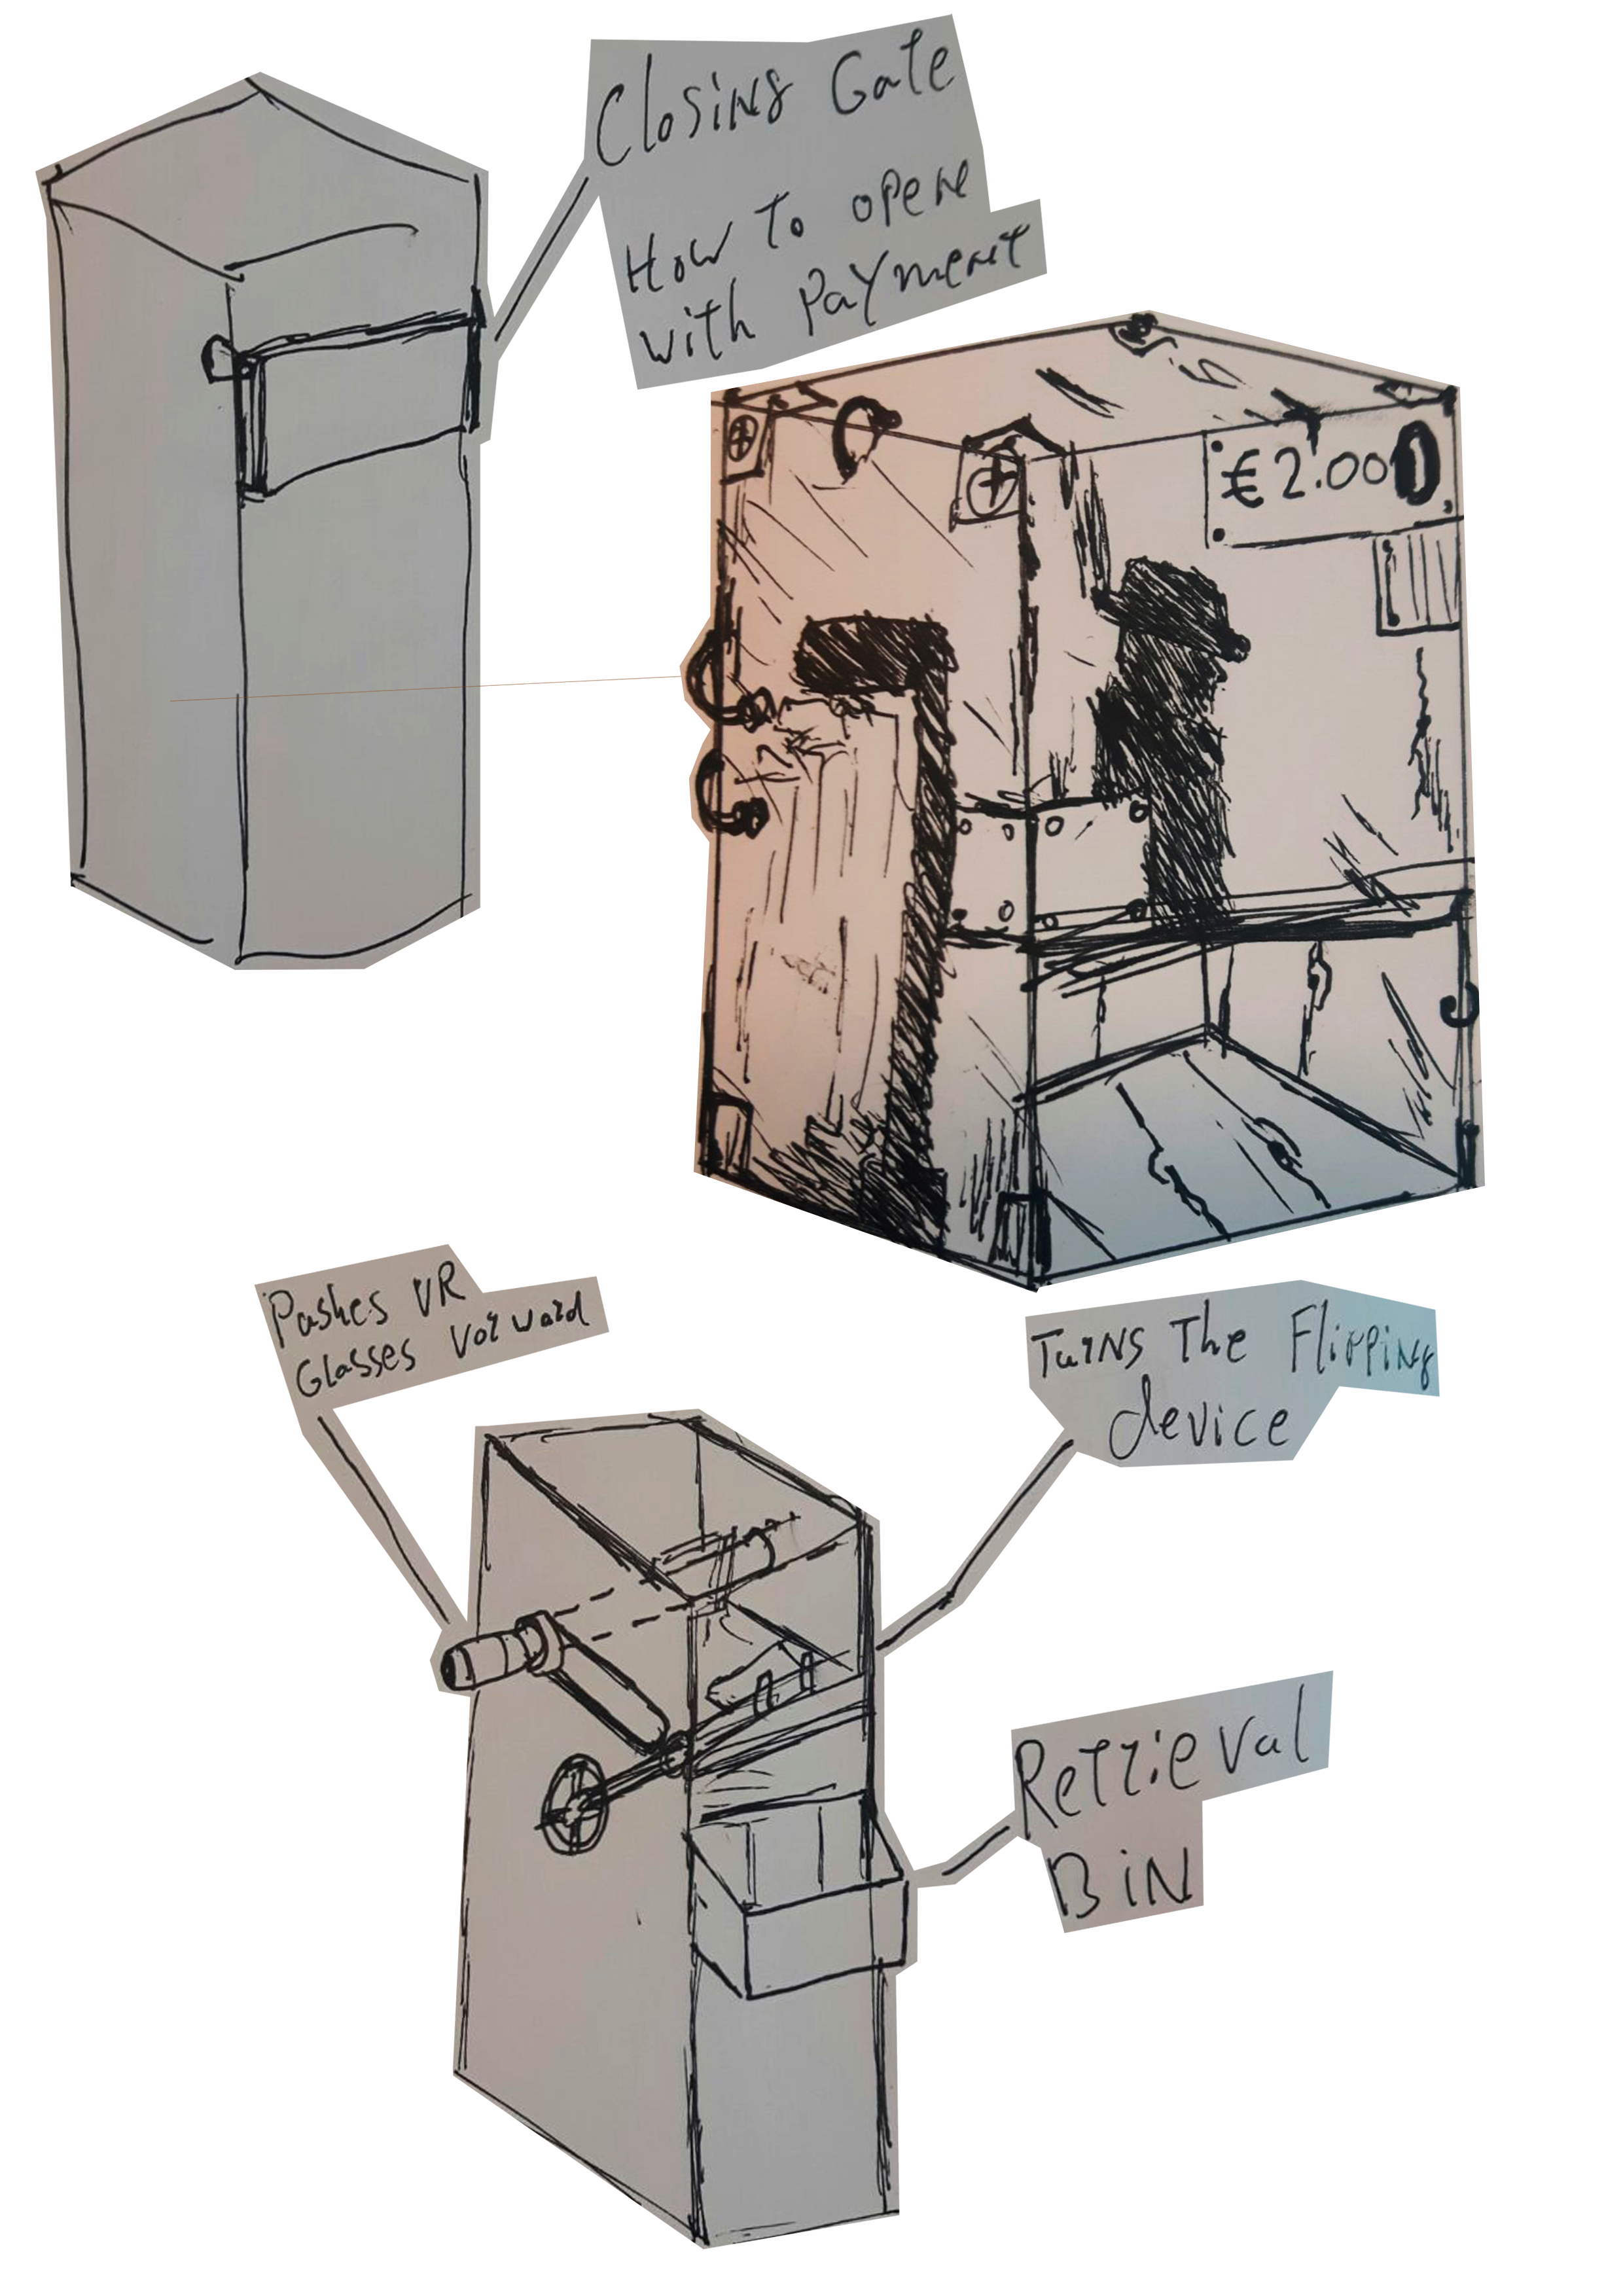 Closing Gate
How To open
with Payment
€2.00
Pushes VR
Glasses Vorward
Turns The Flipping
device
Retrieval
BiN